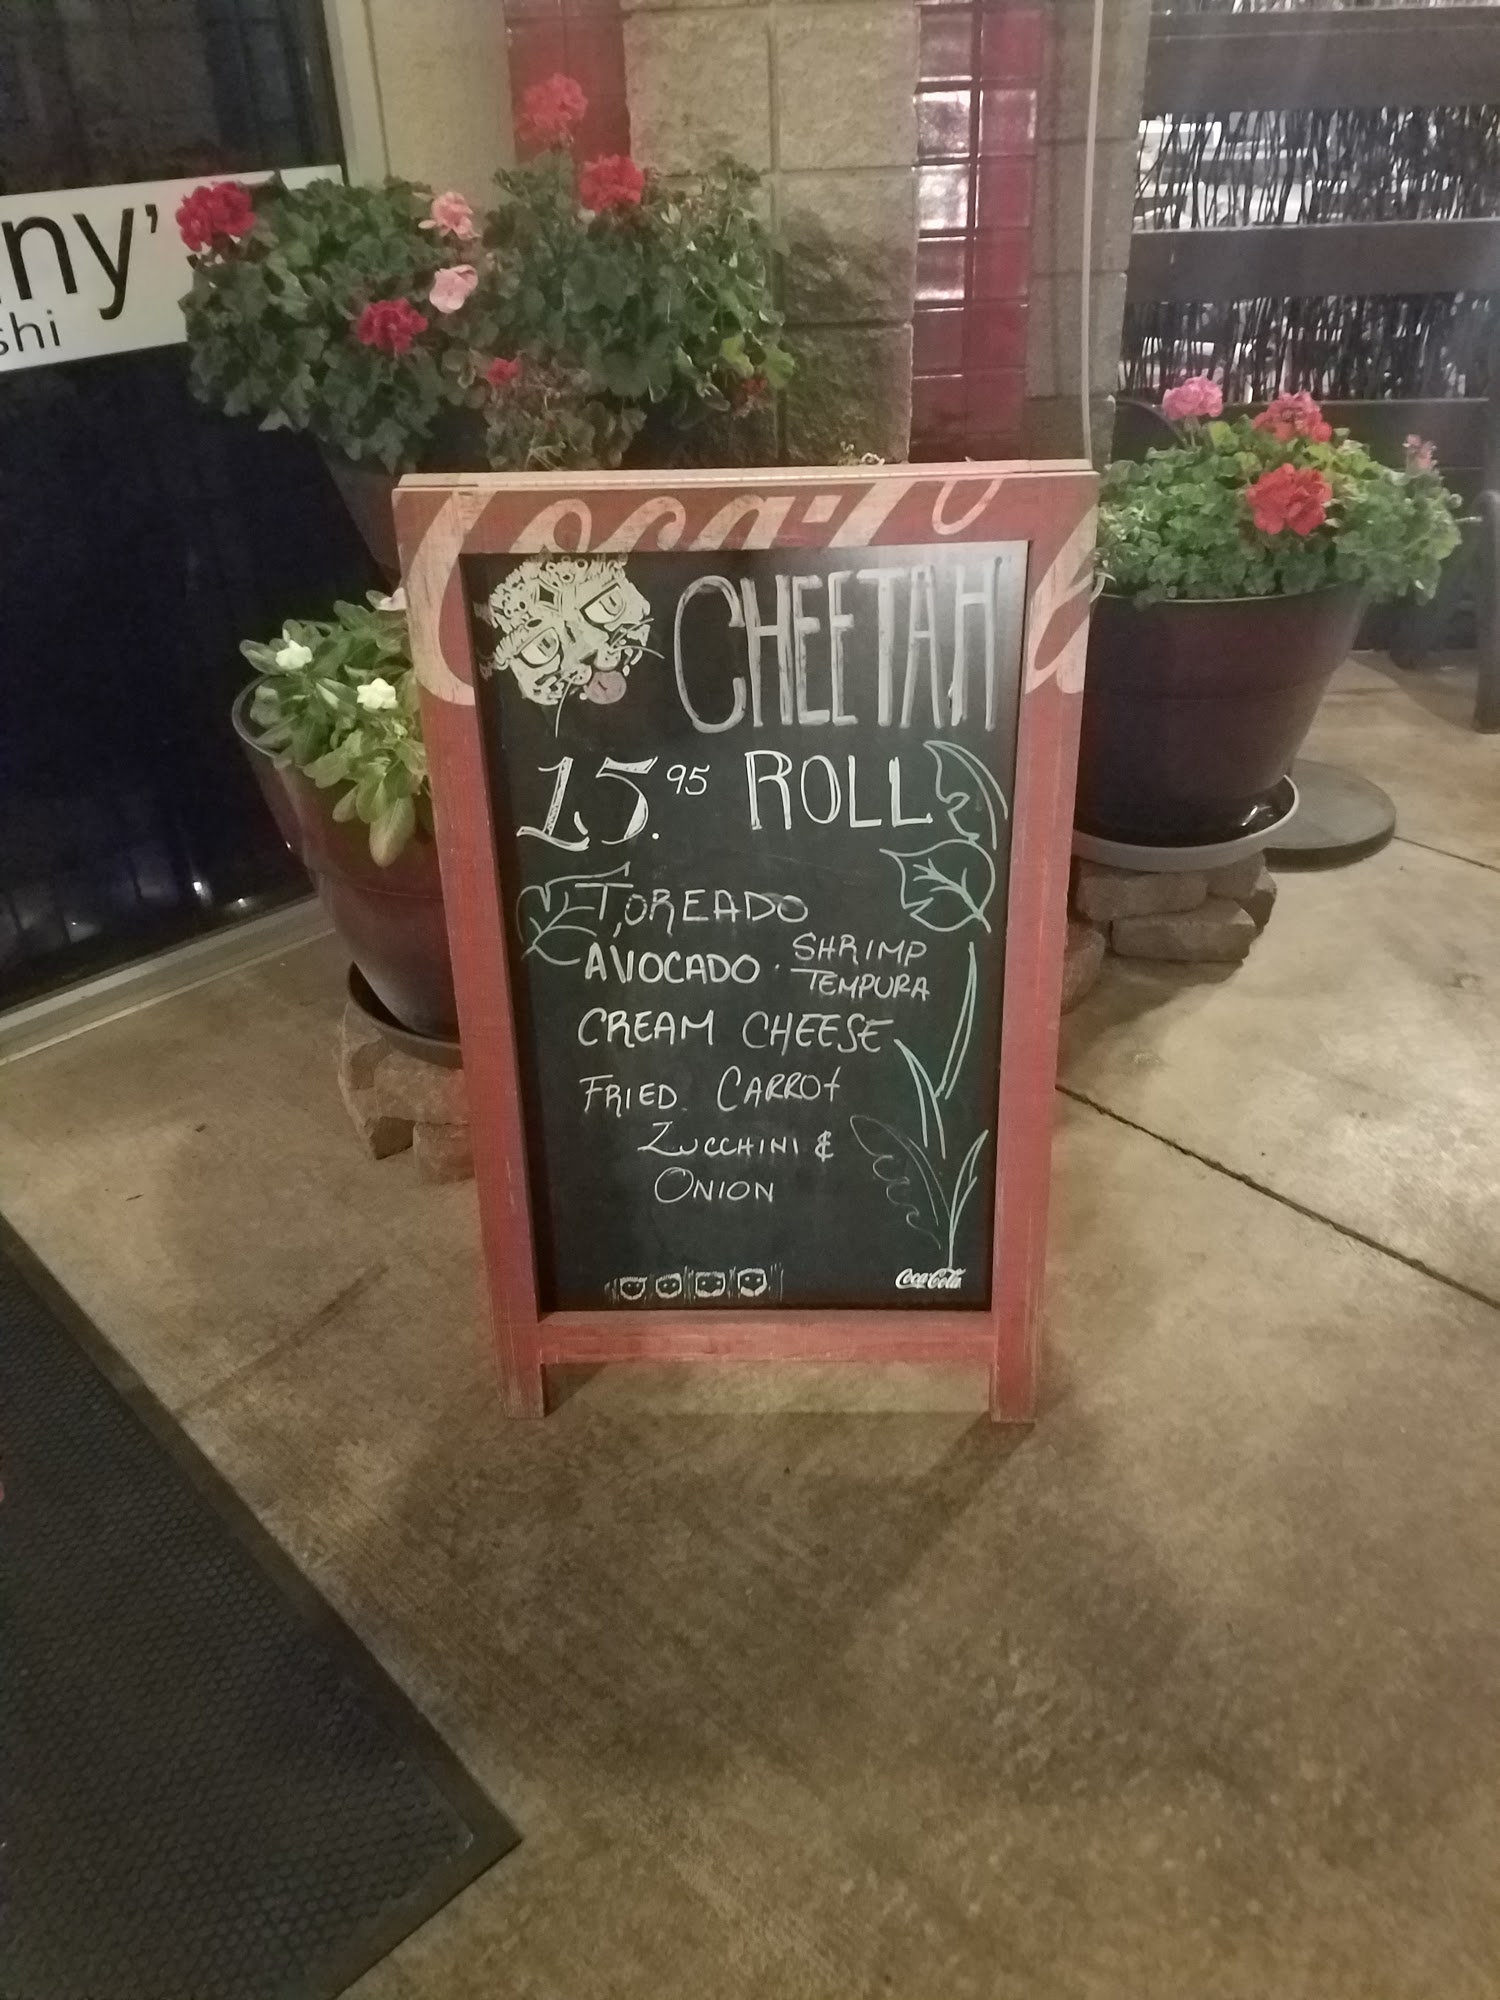 ny'
shi
Coca-Co
CHEETAH
15.95 ROLL
TOREADO
AVOCADO · SHRIMP TEMPURA
CREAM CHEESE
FRIED CARROt
ZUCCHINI &
ONION
Coca-Cola